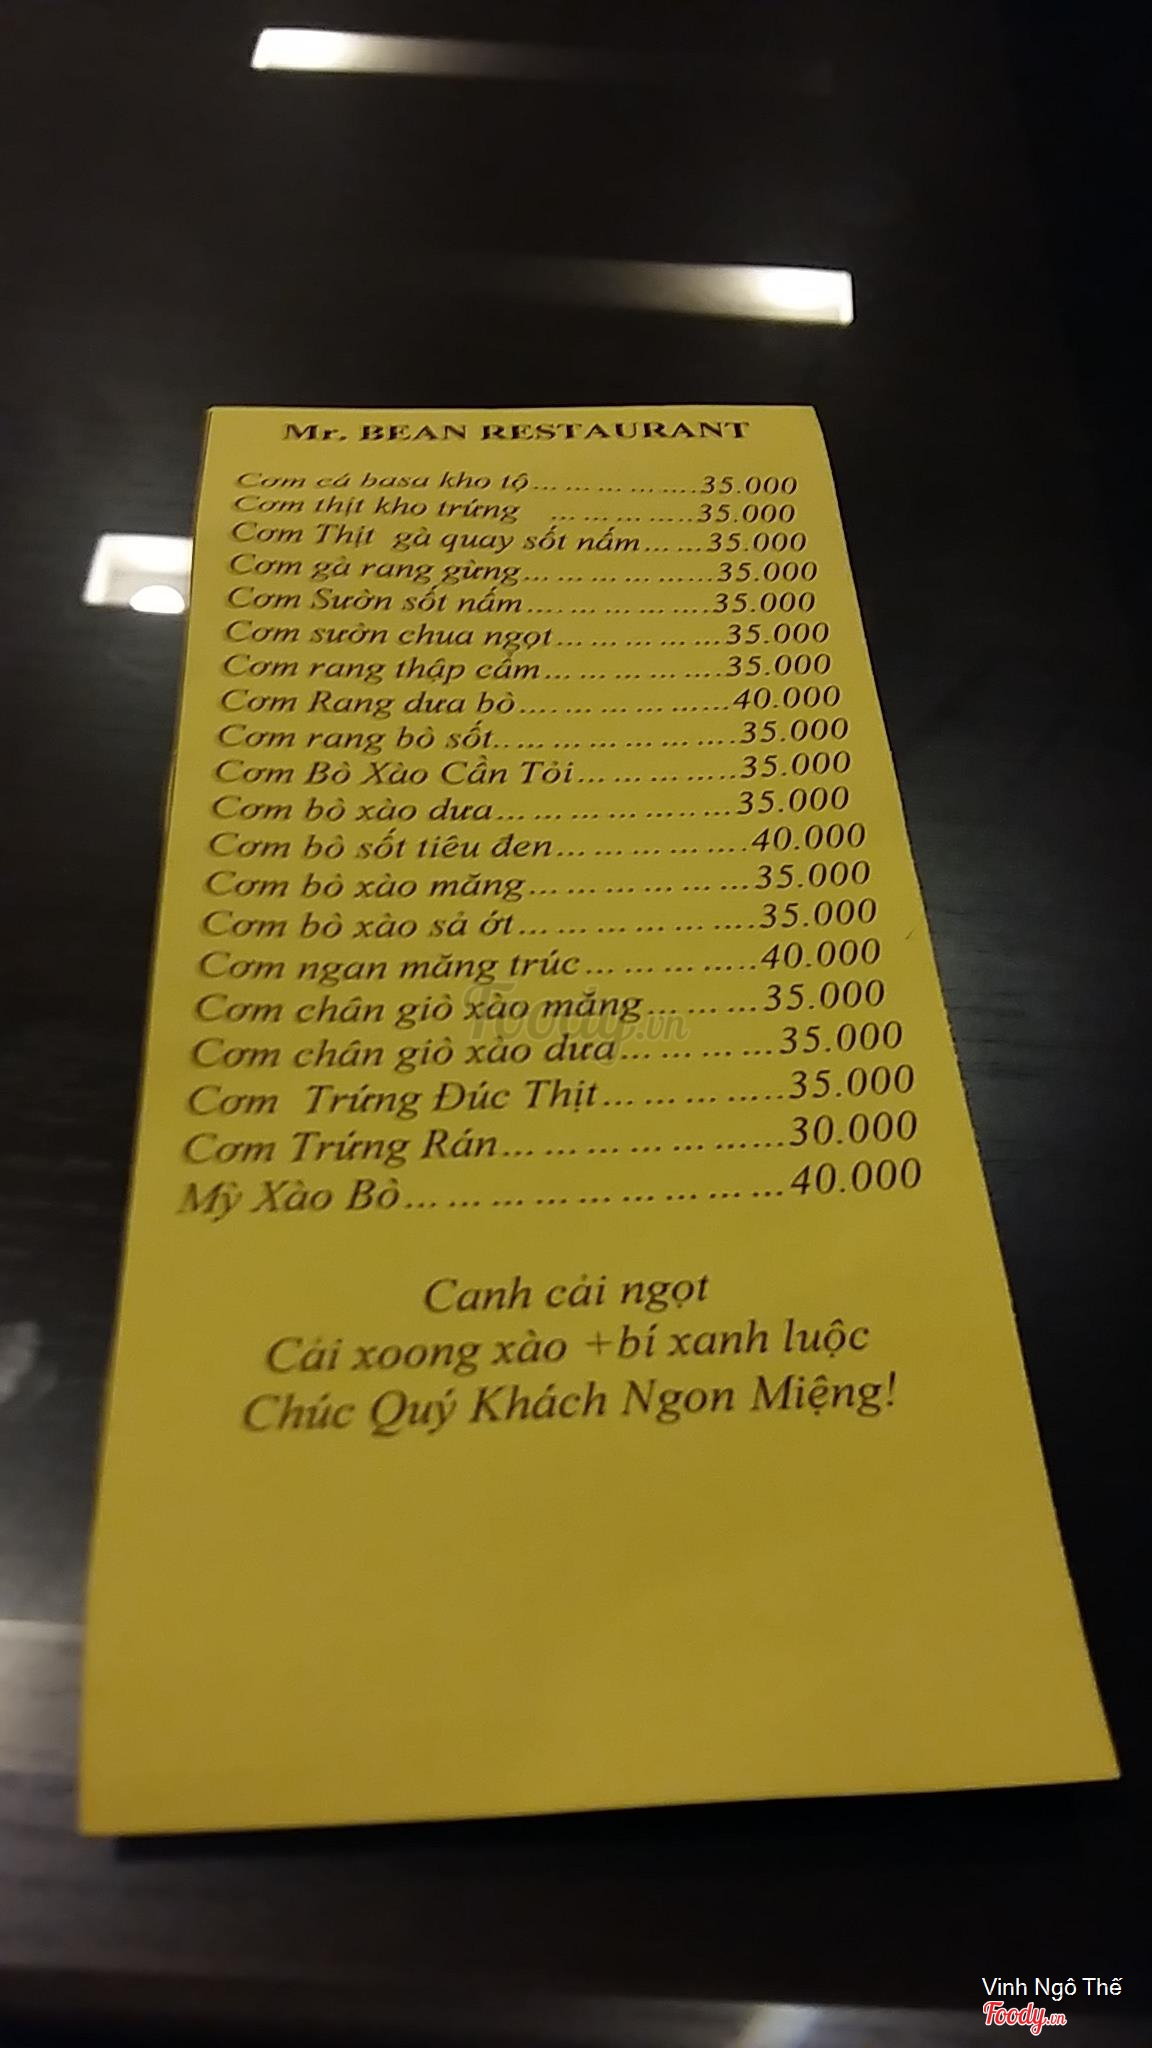 Mr. BEAN RESTAURANT
Cơm cá basa kho tộ... ... ... ... ....35.000
Cơm thịt kho trứng ... ... ... .....35.000
Cơm Thịt gà quay sốt nấm... ...35.000
Cơm gà rang gừng... ... ... ... ......35.000
Cơm Sườn sốt nấm.... ... ... ... ....35.000
Cơm sườn chua ngọt... ... ... ... ...35.000
Cơm rang thập cẩm... ... ... ... ....35.000
Cơm Rang dưa bò.... ... ... ... ......40.000
Cơm rang bò sốt.. ... ... ... ... ... ....35.000
Cơm Bò Xào Cần Tỏi... ... ... .....35.000
Cơm bò xào dưa... ... ... ... ..... ...35.000
Cơm bò sốt tiêu đen... ... ... ... ....40.000
Cơm bò xào măng... ... ... ... ... ...35.000
Cơm bò xào sả ớt... ... ... ... ... ....35.000
Cơm ngan măng trúc... ... ... .....40.000
Cơm chân giò xào măng... ... ...35.000
Cơm chân giò xào dưa... ... ... ...35.000
Cơm Trứng Đúc Thịt... ... ... .....35.000
Cơm Trứng Rán... ... ... ... ... ......30.000
Mỳ Xào Bò... ... ... ... ... ... ... ... ...40.000
Canh cải ngọt
Cải xoong xào +bí xanh luộc
Chúc Quý Khách Ngon Miệng!
Foody.vn
Vinh Ngô Thế
Foody.vn